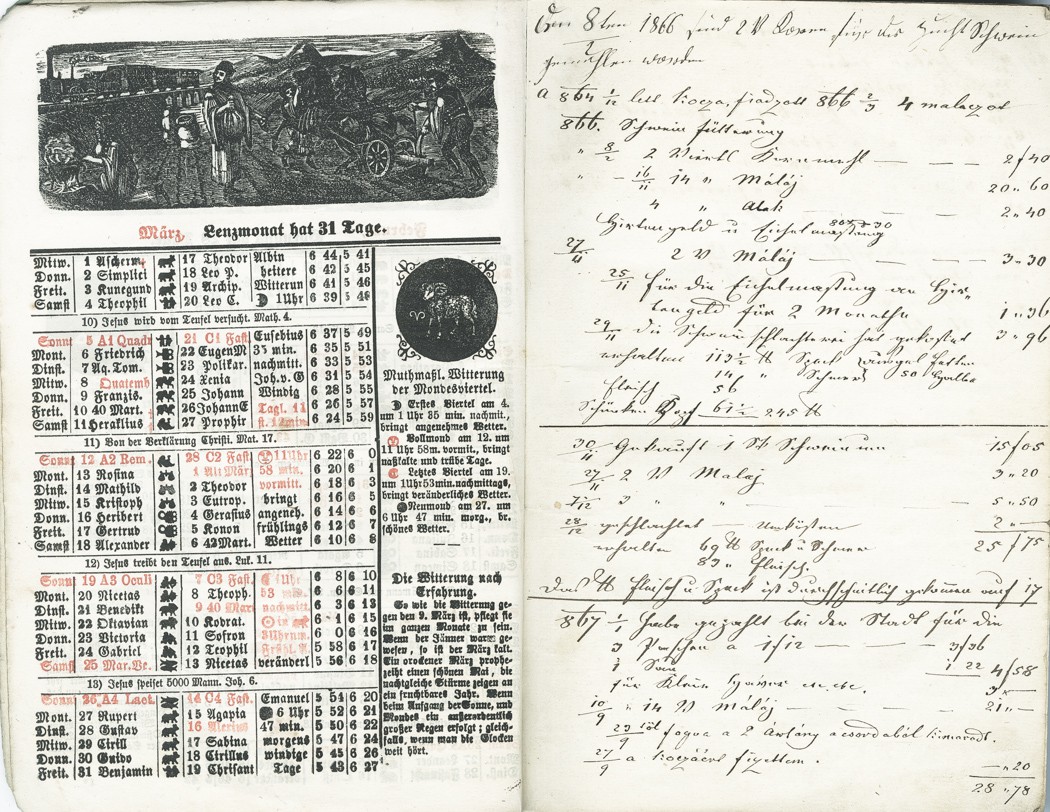 März, Lenzmonat hat 31 Tage.
Mitw. 1 Ascherm. 17 Theodor Albin 6 44 5 41
Donn. 2 Simplici 18 Leo P. heitere 6 42 5 45
Freit. 3 Kunegund 19 Archip. Witterun 6 41 5 46
Samst 4 Theophil 20 Leo C. 1 Uhr 6 39 5 48
10) Jesus wird vom Teufel versucht. Math. 4.
Sonnt 5 A1 Quadr 21 C1 Fast. Eusebius 6 37 5 49
Mont. 6 Friedrich 22 Eugen M 35 min. 6 35 5 51
Dinst. 7 Aq. Tom. 23 Polikar. nachmitt. 6 33 5 53
Mitw. 8 Quatemb 24 Xenia Joh. v. G 6 31 5 54
Donn. 9 Franzis. 25 Johann Windig 6 28 5 55
Freit. 10 40 Mart. 26 Johann E Tagl. 11 6 26 5 57
Samst 11 Heraklius 27 Prophir st. 12 min 6 24 5 59
11) Von der Verklärung Christi. Mat. 17.
Sonn 12 A2 Rem. 28 C2 Fast. 11 Uhr 6 22 6 0
Mont 13 Rosina 1 Alt Mär 58 min. 6 20 6 1
Dinst. 14 Mathild 2 Theodor vormitt. 6 18 6 3
Mitw. 15 Kristoph 3 Eutrop. bringt 6 16 6 5
Donn. 16 Heribert 4 Gerasius angeneh. 6 14 6 6
Freit. 17 Gertrud 5 Konon frühlings 6 12 6 7
Samst 18 Alexander 6 42 Mart. Wetter 6 10 6 8
12) Jesus treibt den Teufel aus. Luk. 11.
Sonn 19 A3 Oculi 7 C3 Fast. Uhr 6 8 6 10
Mont. 20 Nicetas 8 Theoph. 53 m. 6 6 6 11
Dinst. 21 Benedikt 9 40 Mär nachmitt. 6 3 6 13
Mitw. 22 Oktavian 10 Kodrat. in 6 1 6 15
Donn. 23 Victoria 11 Sofron 3 Uhr nm. 6 0 6 16
Freit. 24 Gabriel 12 Teophil Frühl. A. 5 58 6 17
Samst 25 Mar. Ve. 13 Nicetas veränderl 5 56 6 18
13) Jesus speiset 5000 Mann. Joh. 6.
Sonn. 26 A4 Laet. 14 C4 Fast. Emanuel 5 54 6 20
Mont. 27 Rupert 15 Agapia 6 Uhr 5 52 6 21
Dinst. 28 Gustav 16 47 min. 5 50 6 22
Mitw. 29 Cirill 17 Sabina morgens 5 47 6 24
Donn. 30 Guido 18 Cirillus windige 5 45 6 26
Freit. 31 Benjamin 19 Chrisant Tage 5 43 6 27
Muthmaßl. Witterung
der Mondesviertel.
Erstes Viertel am 4.
um 1 Uhr 35 min. nachmitt.,
bringt angenehmes Wetter.
Vollmond am 12. um
11 Uhr 58 m. vormitt., bringt
naßkalte und trübe Tage.
Letztes Viertel am 19.
um 1 Uhr 53 min. nachmittags,
bringt veränderliches Wetter.
Neumond am 27. um
6 Uhr 47 min. morg., br.
schönes Wetter.
Die Witterung nach
Erfahrung.
So wie die Witterung ge-
gen den 9. März ist, pflegt sie
im ganzen Monate zu sein.
Wenn der Jänner warm ge-
wesen, so ist der März kalt.
Ein trockener März prophe-
zeiht einen schönen Mai, die
nachtgleiche Stürme zeigen an
ein fruchtbares Jahr. Wenn
beim Aufgang der Sonne, und
Mondes ein außerordentlich
großer Regen erfolgt; gleich-
falls, wenn man die Glocken
weit hört.
Den 8ten 1866 sind 2 V für die Zucht Schwein
gemahlen worden
a 864 1/12 lett kocza, fiadzott 866 2/3 4 malaczot
866. Schwein fütterung
" 8/2 2 Viertl Kornmehl — — — 2 f 40
" — 16/11 14 " Máláj 20 " 60
4 " — — 2 " 40
Hirtengeld u Eichelmastung
27/11 2 V Máláj — — — 3 " 30
25/11 für die Eichelmastung an Hir-
tengeld für 2 Monathe 1 " 36
29/11 die Schweinschlachterei hat gekostet 3 " 96
erhalten 113 1/2 ℔ Speck
14 " Schmeer
Fleisch 56
Schinken 61 1/2 245 ℔
30/11 Gekauft 1 St Schwein um 15 f 05
27/11 2 V Malaj — 3 " 20
3 " " — 5 " 50
28/12 geschlachtet — Unkosten 2 " —
erhalten 69 ℔ Speck u Schmeer 25 f 75
83 " Fleisch.
Das ℔ Fleisch u Speck ist durchschnittlich gekommen auf 17
867 1/1 Habe gezahlt bei der Stadt für die
3 a 1 f 12 — 3 f 36
1 Sau 1 22 4 f 58
für Klein
10/9 " 14 V Máláj — — — 21 " —
23/9 fogva a 2
27/9 a kocáért fizettem. — " 20
28 " 78